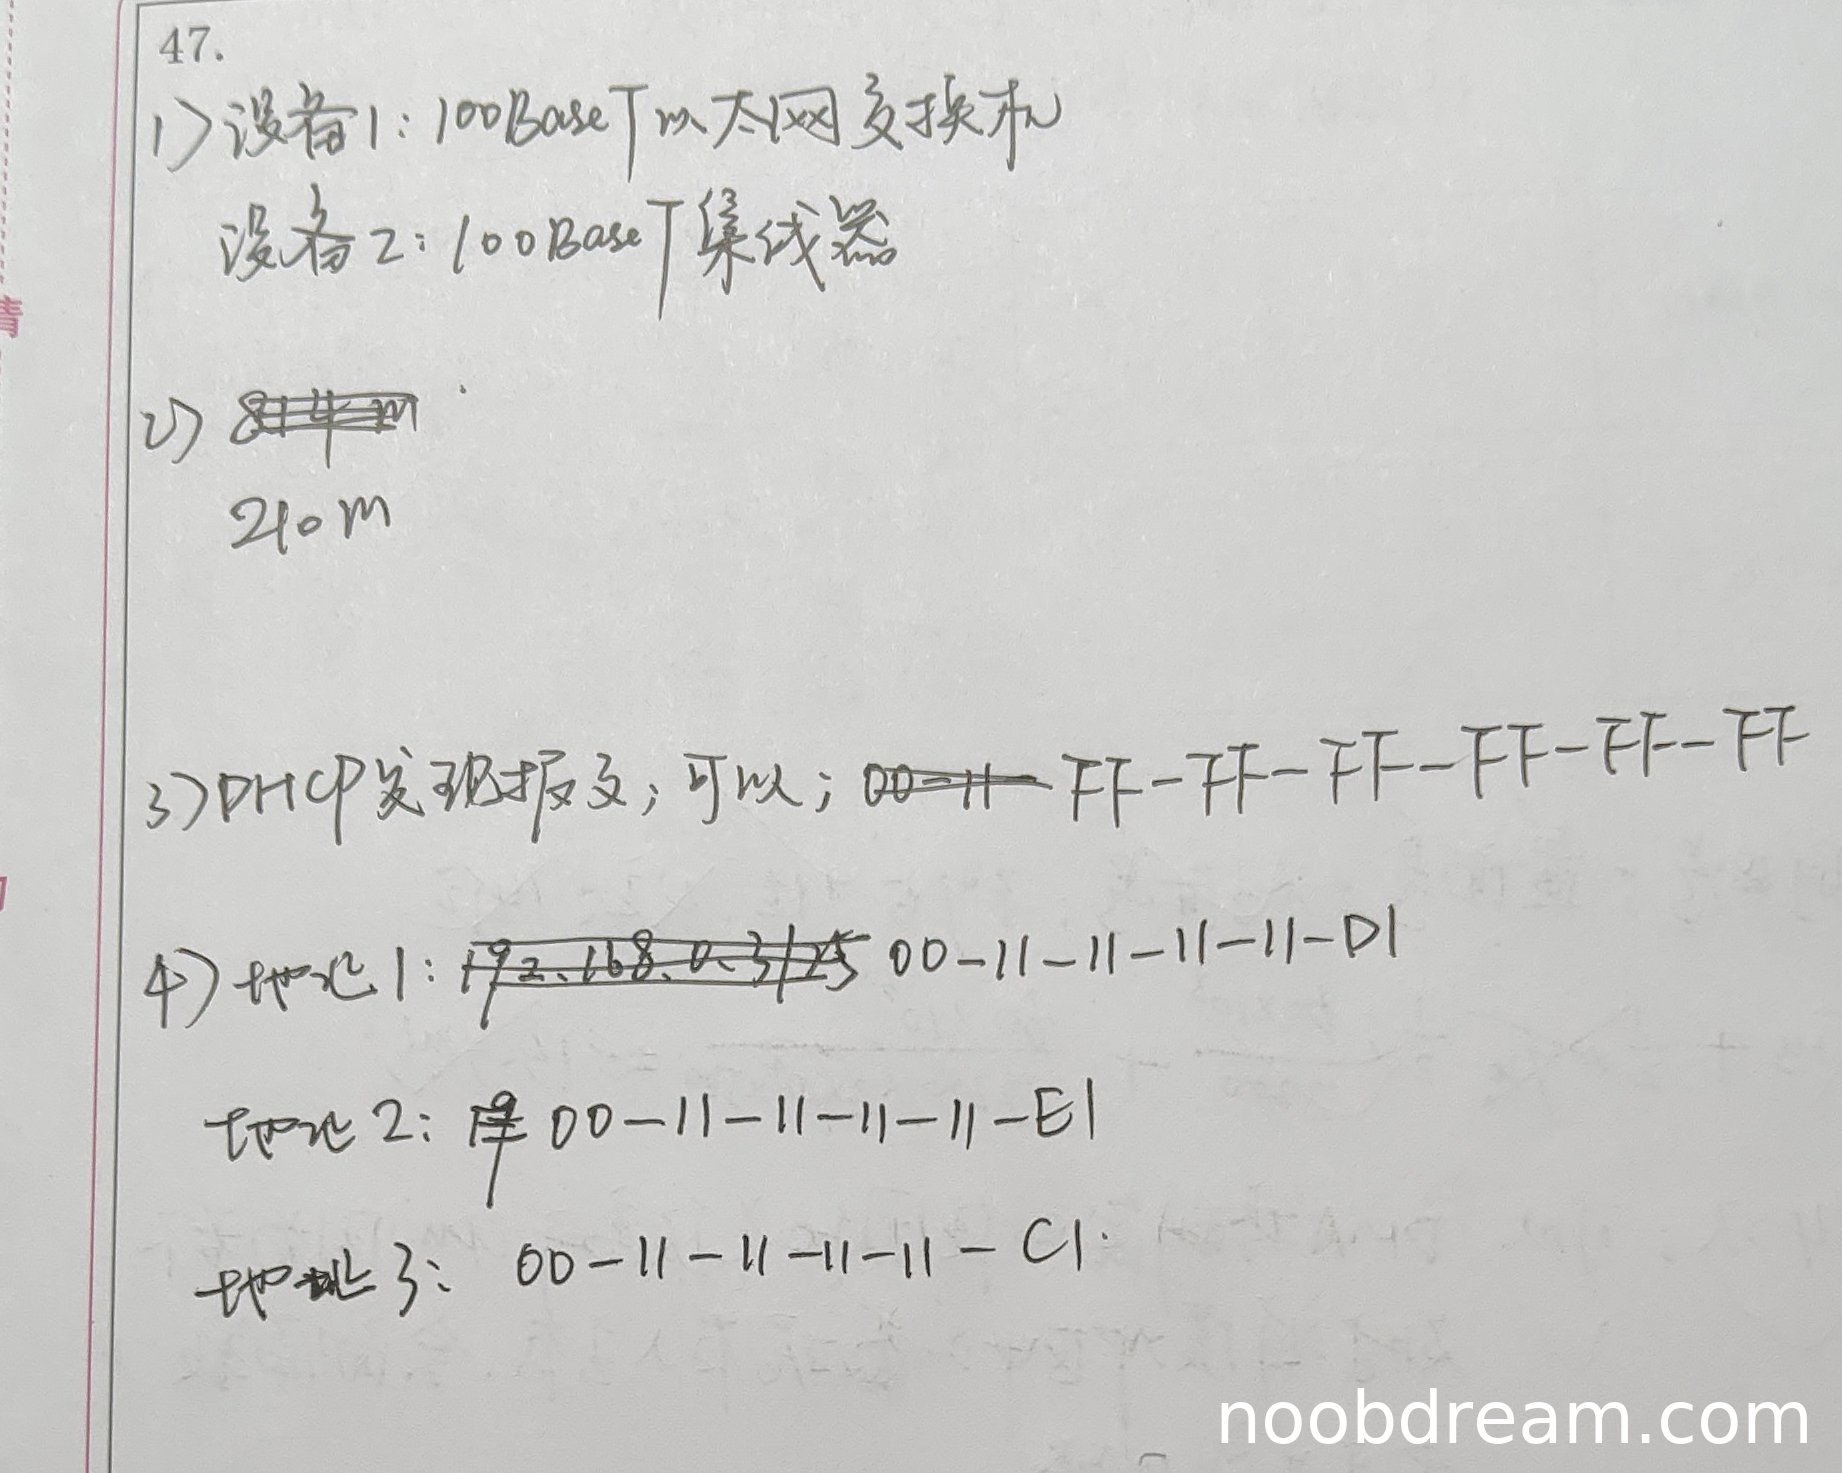 47.
1) 设备1: 100BaseT以太网交换机
设备2: 100BaseT集线器
2) 814m
210m
3) DHCP发现报文; 可以; 00-11- FF-FF-FF-FF-FF-FF
4) 地址1: 192.168.0.3/25 00-11-11-11-11-D1
地址2: 00-11-11-11-11-E1
地址3: 00-11-11-11-11-C1.
noobdream.com